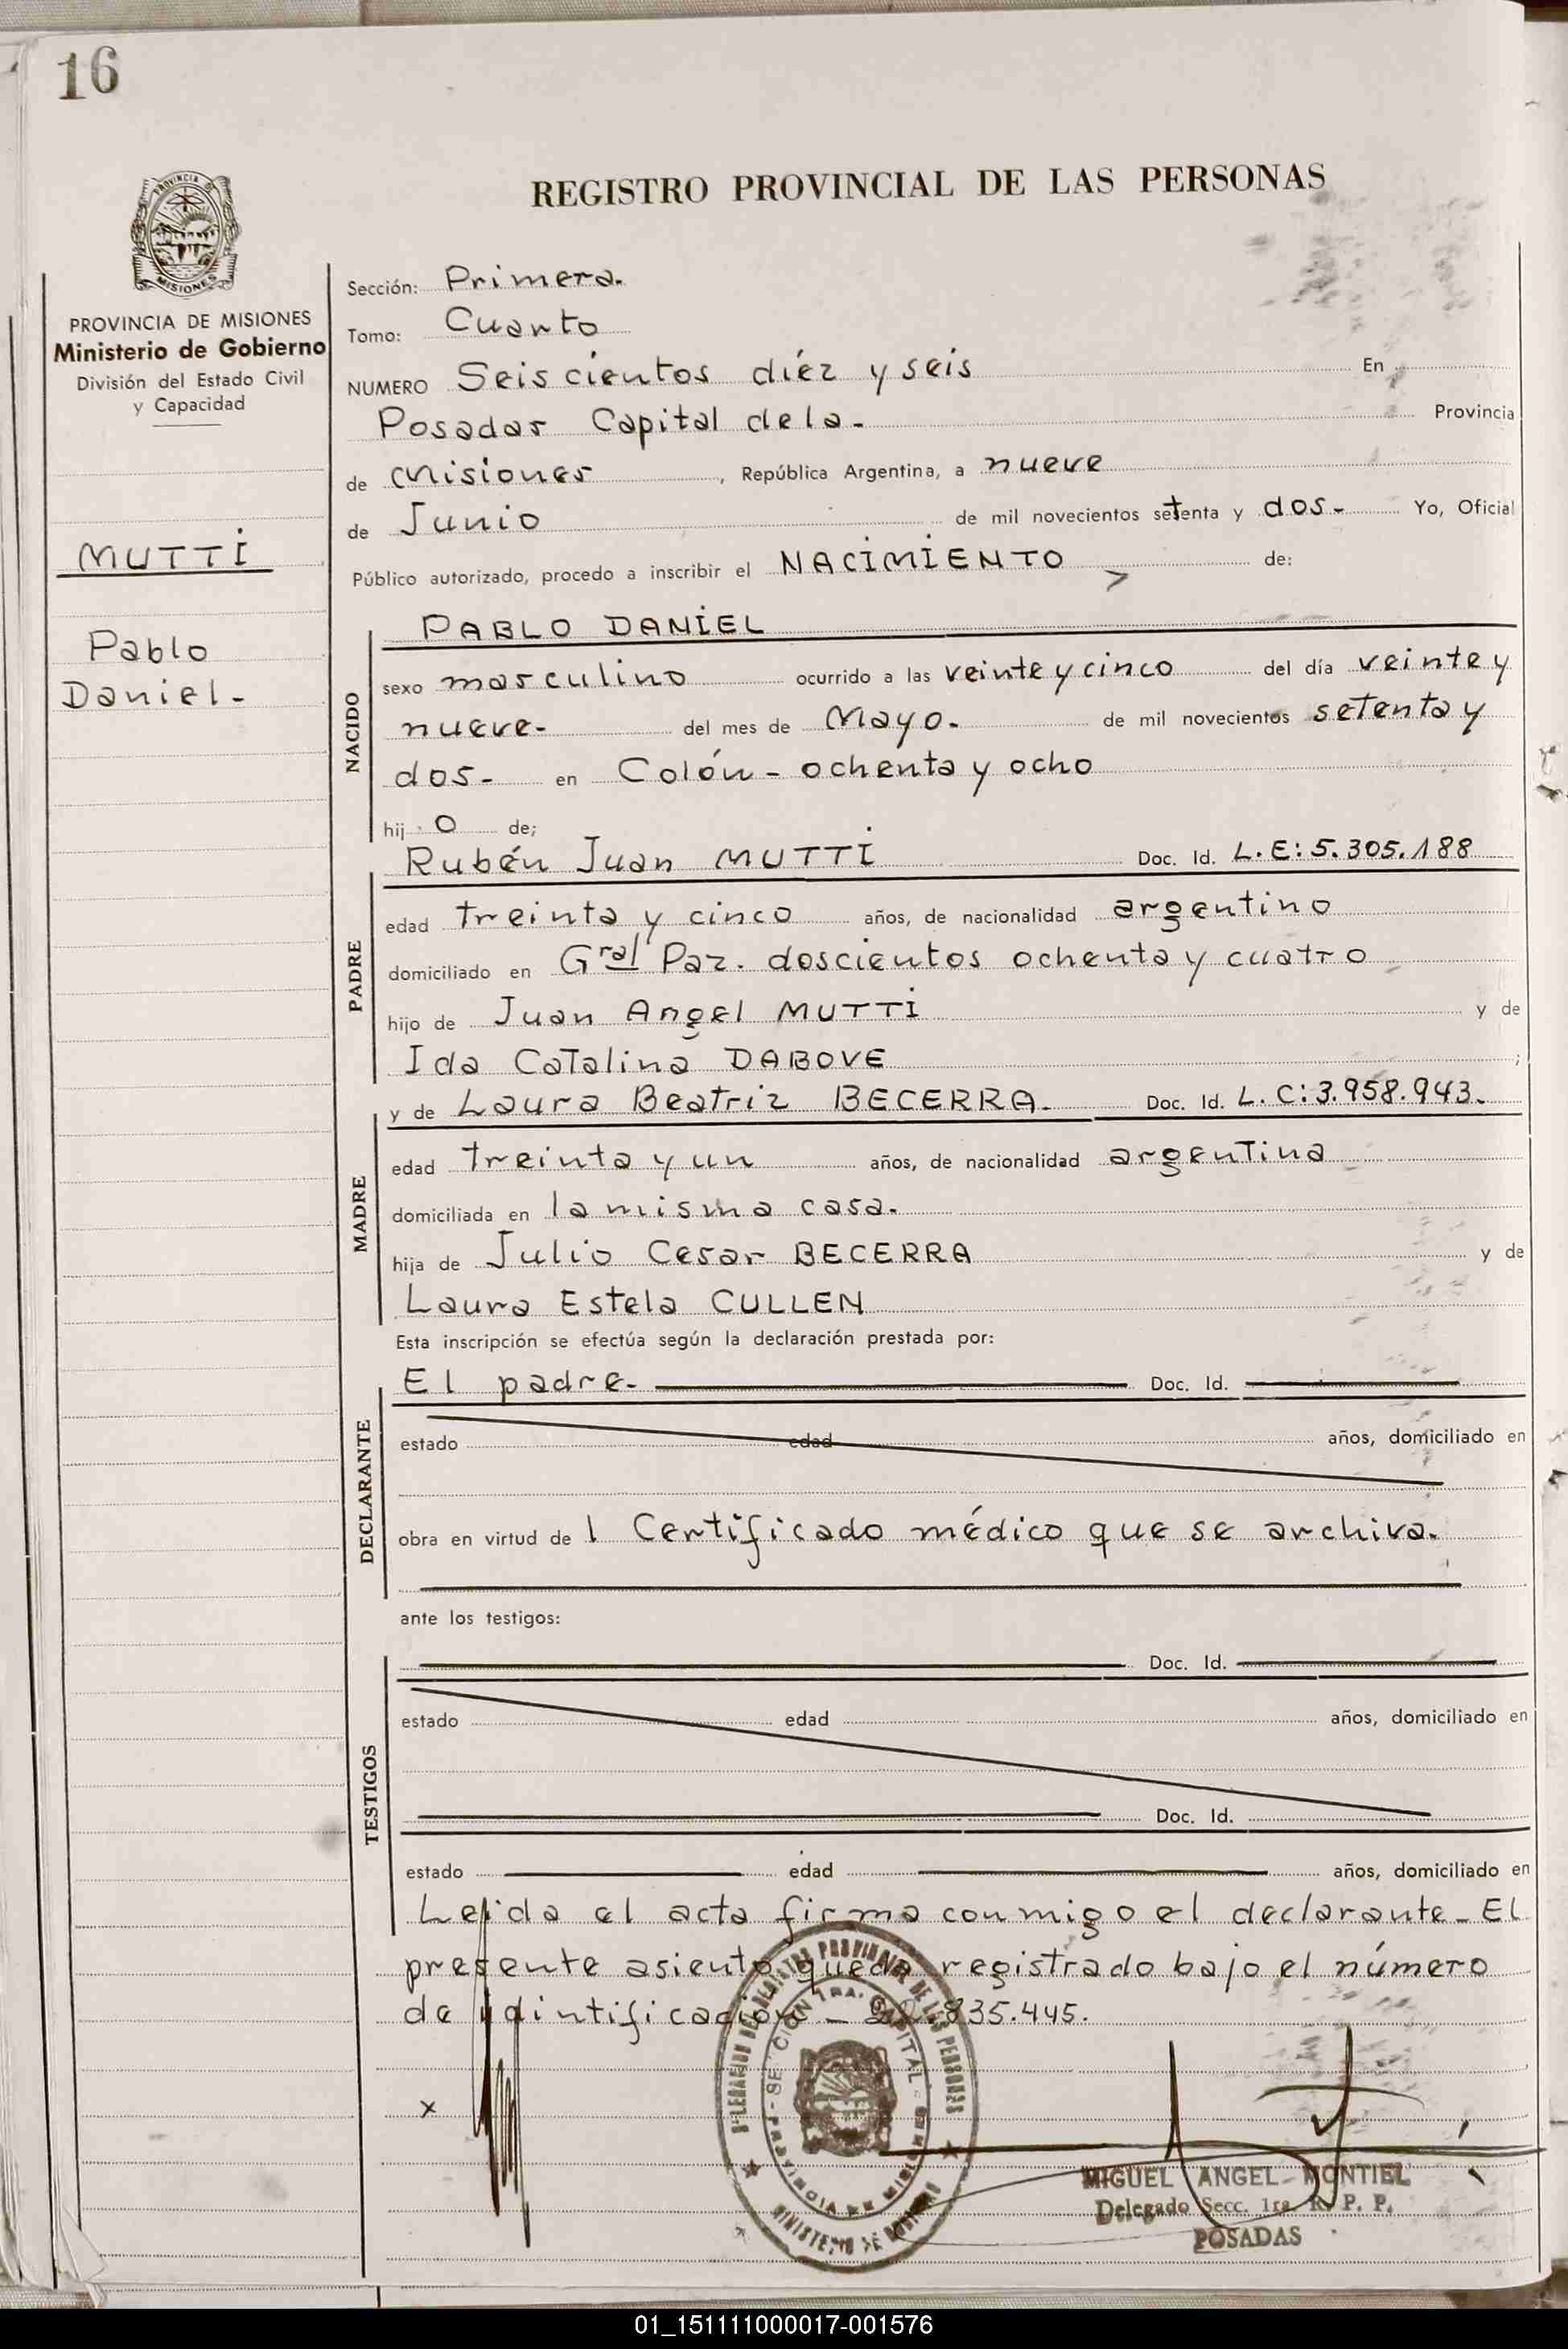 16
PROVINCIA DE
MISIONES
REGISTRO PROVINCIAL DE LAS PERSONAS
PROVINCIA DE MISIONES
Ministerio de Gobierno
División del Estado Civil
y Capacidad
MUTTI
Pablo
Daniel-
Sección: Primera.
Tomo: Cuarto
NUMERO Seiscientos diéz y seis En
Posadas Capital de la- Provincia
de Misiones, República Argentina, a nueve
de Junio de mil novecientos setenta y dos- Yo, Oficial
Público autorizado, procedo a inscribir el NACIMIENTO de:
NACIDO
PABLO DANIEL
sexo masculino ocurrido a las veinte y cinco del día veinte y
nueve- del mes de Mayo- de mil novecientos setenta y
dos- en Colón - ochenta y ocho
hij o de;
PADRE
Rubén Juan MUTTI Doc. Id. L.E: 5.305.188
edad treinta y cinco años, de nacionalidad argentino
domiciliado en Gral Paz. doscientos ochenta y cuatro
hijo de Juan Angel MUTTI y de
Ida Catalina DABOVE ;
MADRE
y de Laura Beatriz BECERRA- Doc. Id. L.C: 3.958.943.
edad treinta y un años, de nacionalidad argentina
domiciliada en la misma casa.
hija de Julio Cesar BECERRA y de
Laura Estela CULLEN
Esta inscripción se efectúa según la declaración prestada por:
DECLARANTE
El padre- Doc. Id.
estado edad años, domiciliado en
obra en virtud de 1 Certificado médico que se archiva.
ante los testigos:
TESTIGOS
Doc. Id.
estado edad años, domiciliado en
Doc. Id.
estado edad años, domiciliado en
Leida el acta firma conmigo el declarante - El
presente asiento queda registrado bajo el número
de idintificación - 22.835.445.
x
DELEGACION DEL REGISTRO PROVINCIAL DE LAS PERSONAS
SECCION 1RA. CAPITAL
PROVINCIA DE MISIONES
MINISTERIO DE GOBIERNO
MIGUEL ANGEL MONTIEL
Delegado Secc. 1ra R. P. P.
POSADAS
01_151111000017-001576